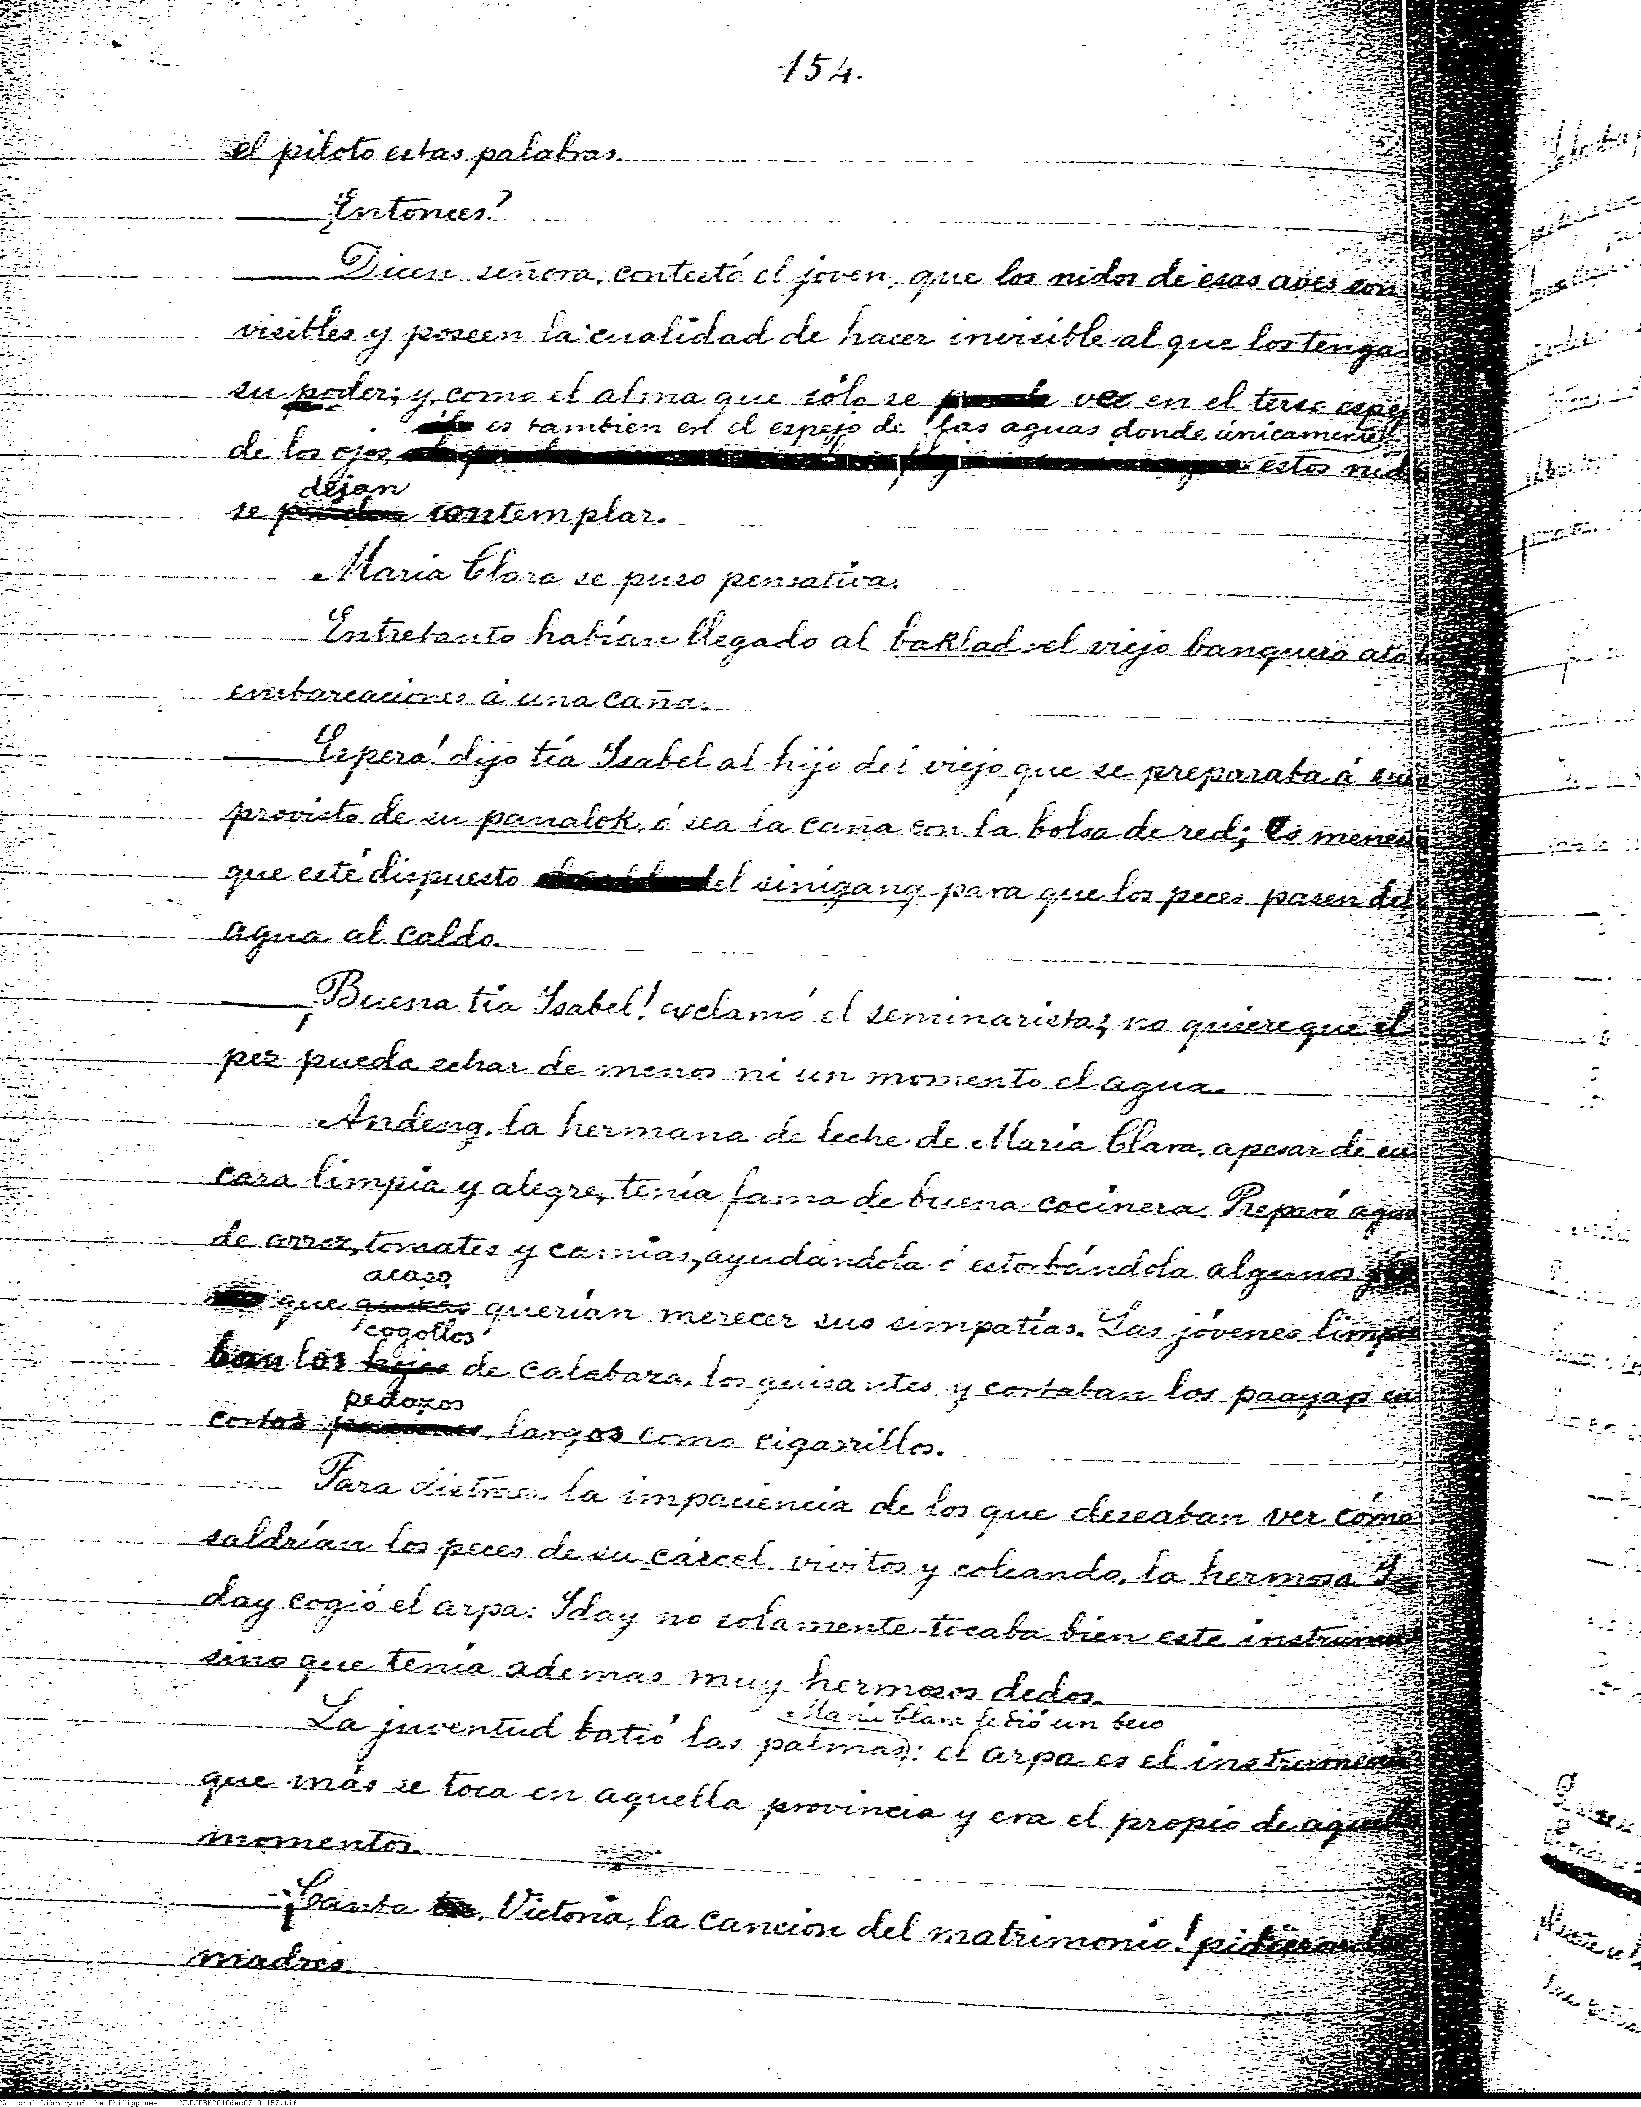 154.
el piloto estas palabras.
—¿Entonces?
—Dicen señora, contestó el joven, que los nidos de esas aves son
visibles y poseen la cualidad de hacer invisible al que los tenga
su poder; y como el alma que sólo se ver en el terso espejo
es tambien en el espejo de las aguas donde únicamente
de los ojos, estos nid
dejan
se contemplar.
Maria Clara se puso pensativa.
Entretanto habían llegado al baklad: el viejo banquero ató
embarcaciones á una caña.
—Espera! dijo tía Isabel al hijo del viejo que se preparaba á
provisto de su panalok, ó sea la caña con la bolsa de red; Es menes
que esté dispuesto el sinigang para que los peces pasen del
agua al caldo.
—¡Buena tía Isabel! exclamó el seminarista; no quiere que el
pez pueda echar de menos ni un momento el agua.
Andeng, la hermana de leche de Maria Clara, apesar de su
cara limpia y alegre, tenía fama de buena cocinera. Preparó agua
de arroz, tomates y camias, ayudándola ó estorbándola algunos
acaso
que quizas querían merecer sus simpatías. Las jóvenes limpia
cogollos
ban los hojas de calabaza, los guisantes y cortaban los paayap en
pedazos
cortos largos como cigarrillos.
Para distraer la impaciencia de los que deseaban ver cómo
saldrían los peces de su cárcel vivitos y coleando, la hermosa I-
day cogió el arpa: Iday no solamente tocaba bien este instrumen
sino que tenía ademas muy hermosos dedos.
Maria Clara le dió un beso
La juventud batió las palmas: el arpa es el instrumento
que más se toca en aquella provincia y era el propio de aquel
momentos.
—¡Canta Victoria, la cancion del matrimonio! pidieron las
madres.